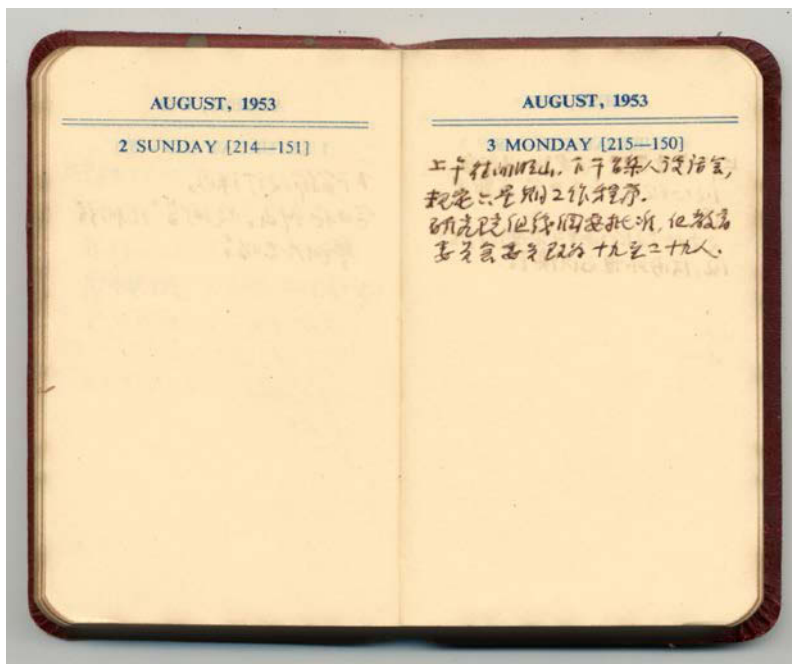 AUGUST, 1953
2 SUNDAY [214—151]
AUGUST, 1953
3 MONDAY [215—150]
上午往阳明山，下午召集人谈话会，
规定六星期工作程序。
研究院组织纲要批准，但教育
委员会委员改为十九至二十九人。